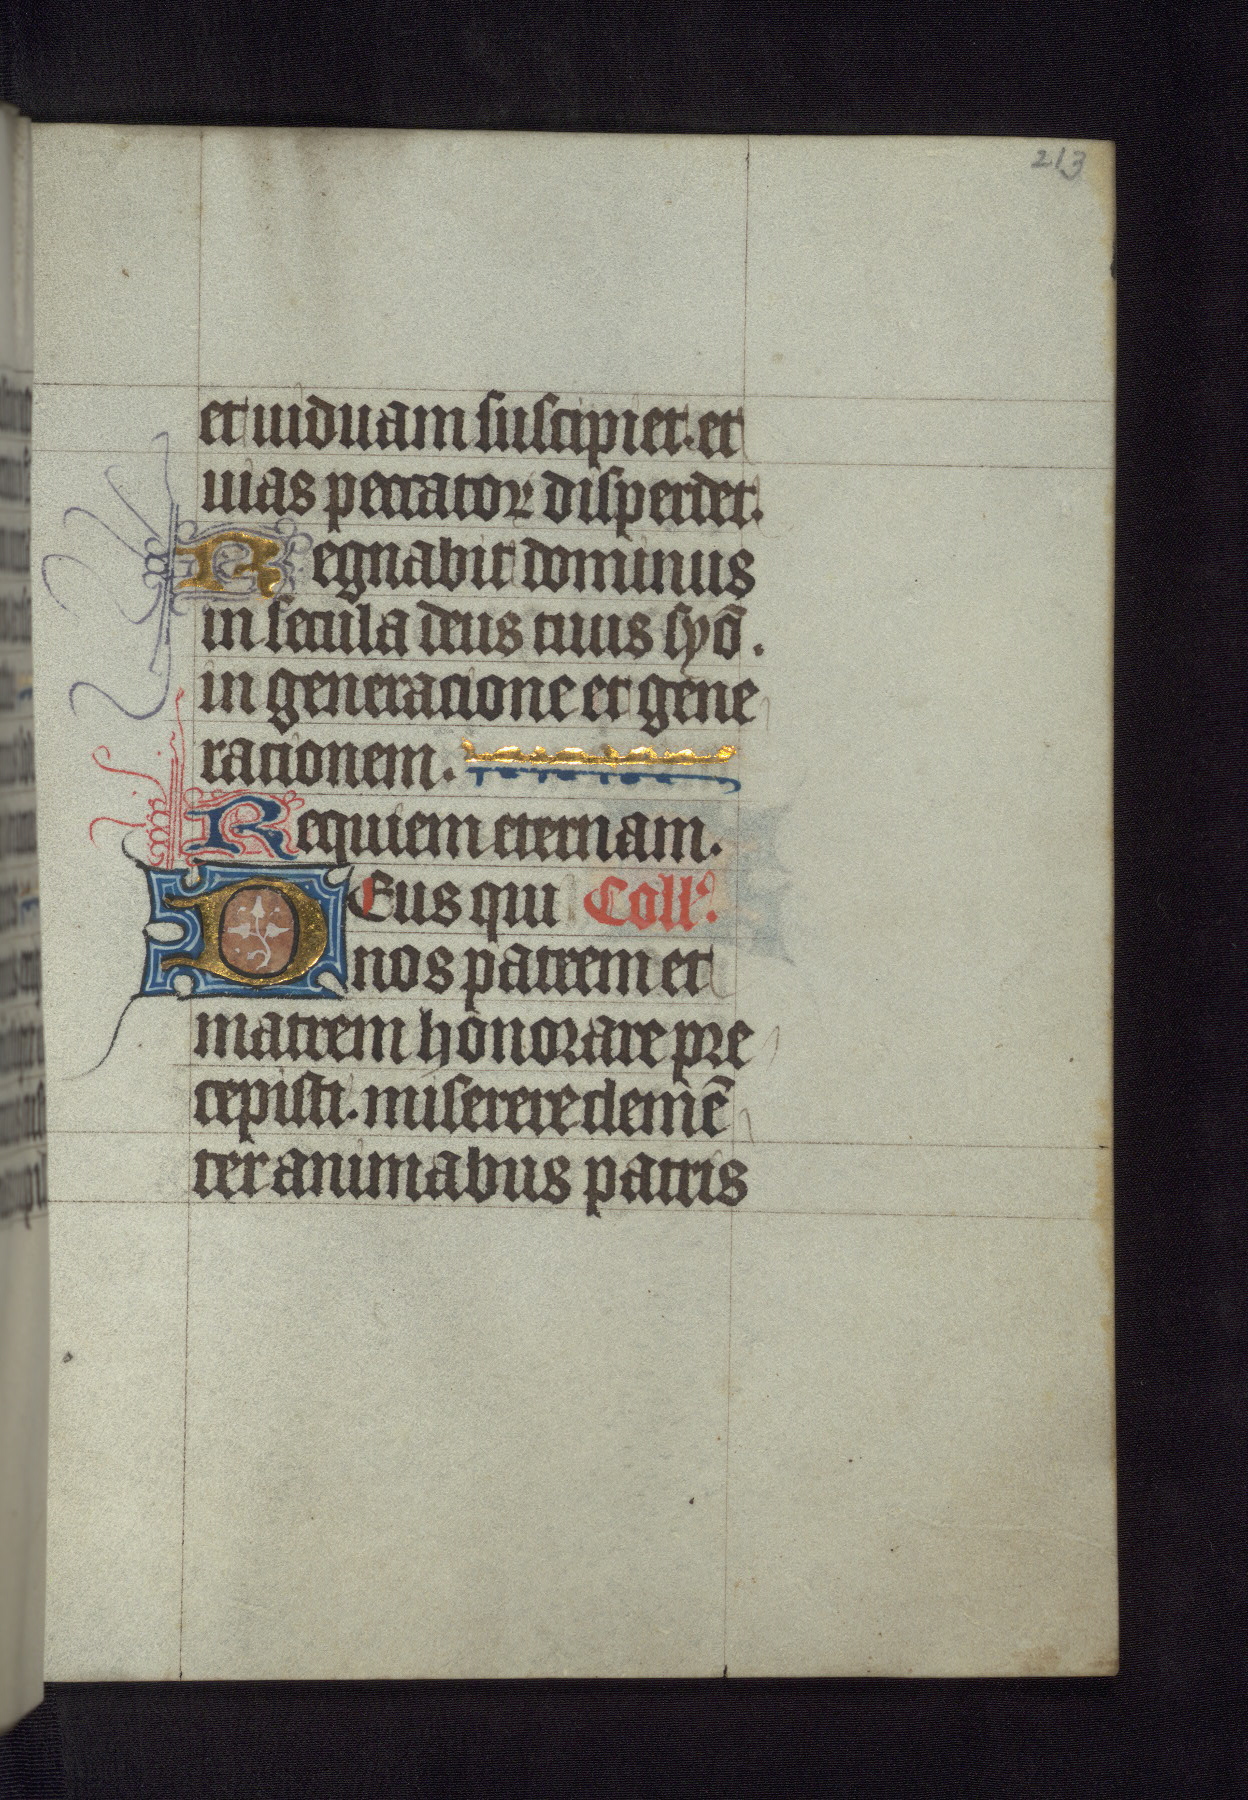 213
et uiduam suscipiet. et
uias peccatoꝝ disperdet.
Regnabit dominus
in secula deus tuus syō.
in generacione et gene
racionem.
Requiem eternam.
DEus qui Coll'.
nos patrem et
matrem honorare pre
cepisti. miserere clemē
ter animabus patris